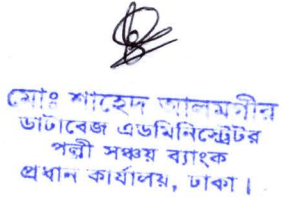 মোঃ শাহেদ আলমগীর
ডাটাবেজ এডমিনিস্ট্রেটর
পল্লী সঞ্চয় ব্যাংক
প্রধান কার্যালয়, ঢাকা।